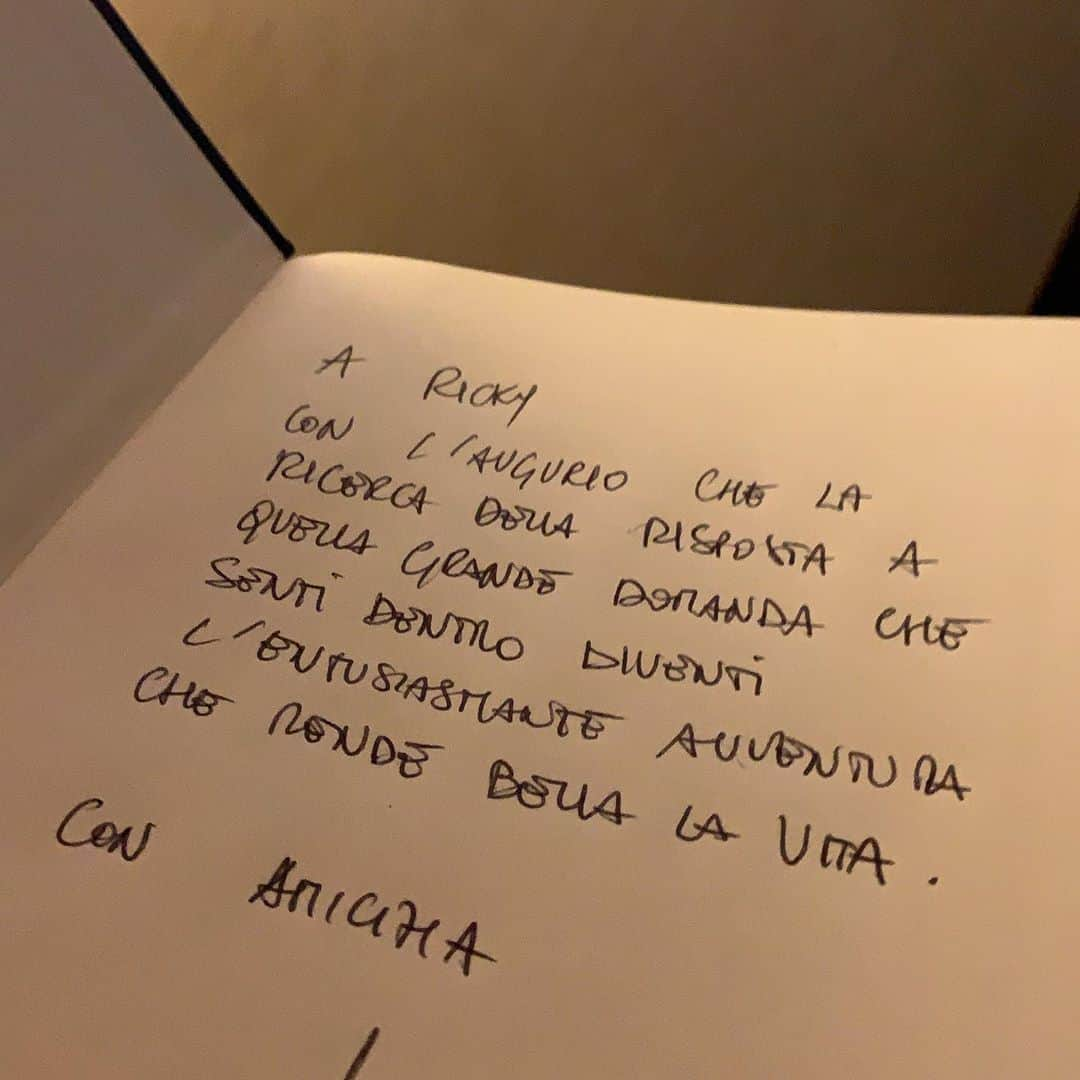 A RICKY
CON L'AUGURIO CHE LA
RICERCA DELLA RISPOSTA A
QUELLA GRANDE DOMANDA CHE
SENTI DENTRO DIVENTI
L'ENTUSIASMANTE AVVENTURA
CHE RENDE BELLA LA VITA.
CON AMICIZIA